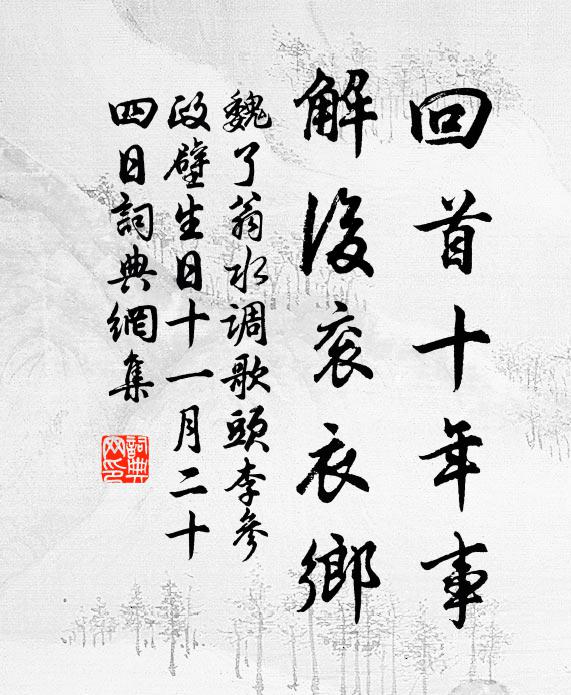 回首十年事
解後衮衣鄉
魏了翁水調歌頭李參
政壁生日十一月二十
四日詞典網集
詞典
网印